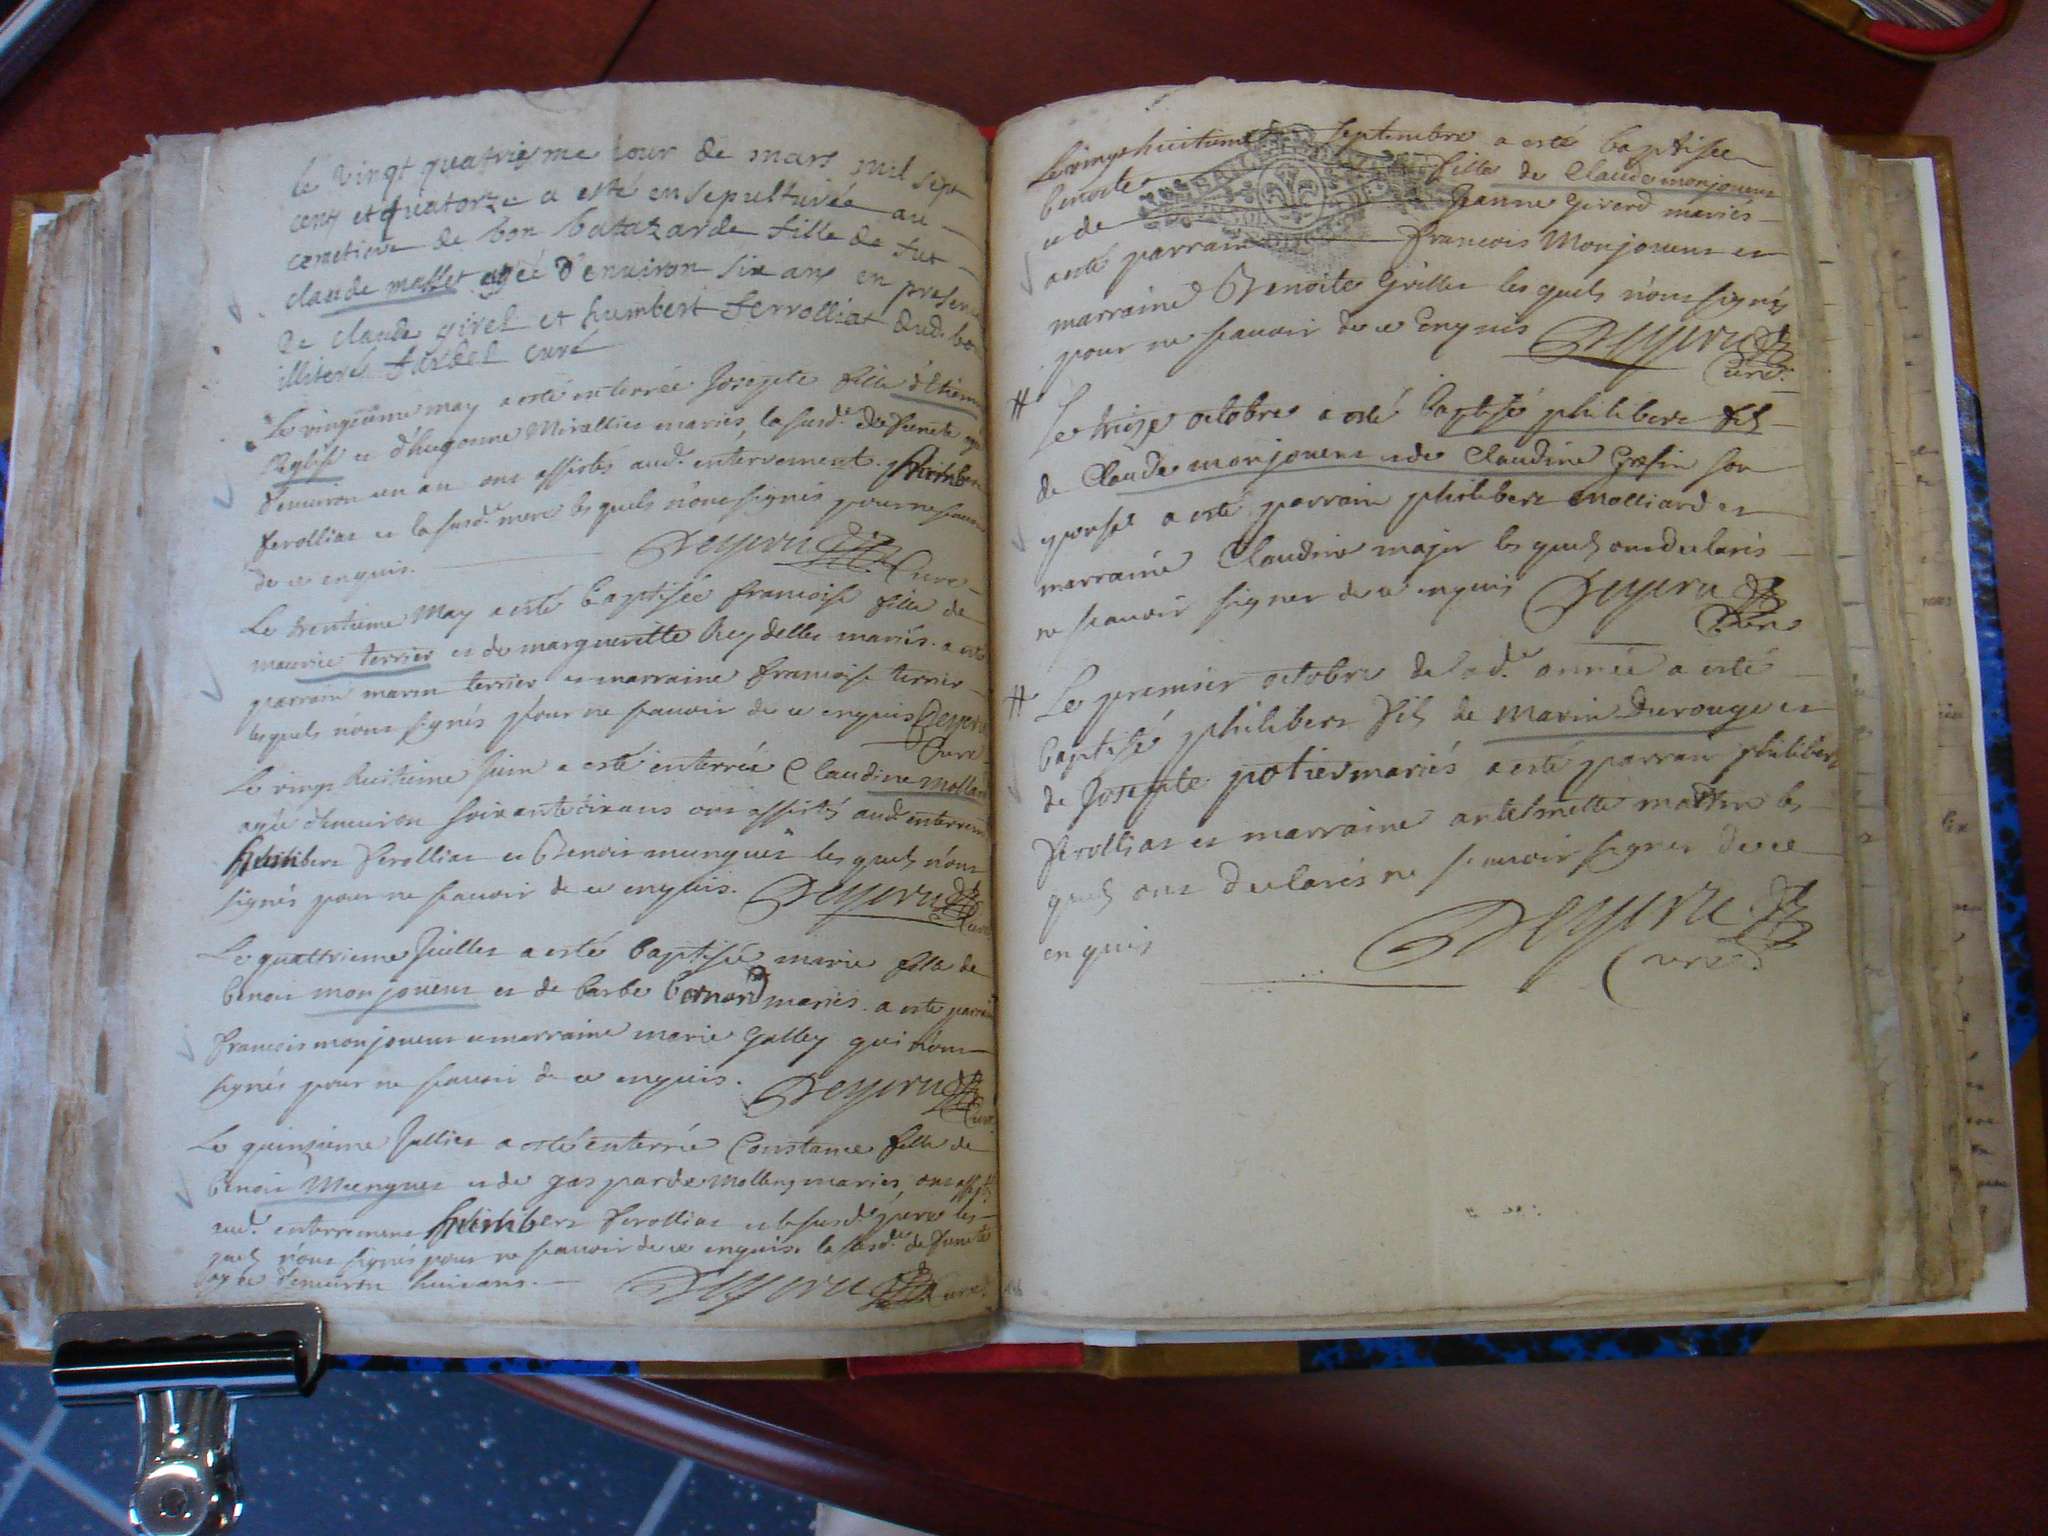 le vingt quatriesme iour de mars mil sept
cent et quatorze a esté ensepulturée au
cemetiere de bon batazarde fille de fut
claude masset agée d'enuiron six ans en presence
de claude girel et humbert ferrolliat dud. bon
illiterés curé
Le vingtième may a esté enterrée Josepte fille d'Etienne
et d'hugonne Mirallier mariés, la susd.e defuncte agée
d'enuiron un an ont assistés aud. enterrement philibert
ferolliat et la susd.e mere les quels n'ont signés pour ne scauoir
de ce enquis. Curé
Le trentieme May a esté baptisée francoise fille de
maurice terrier et de marguerite Reydellet mariés. a esté
parrain marin terrier et marraine francoise terrier
lesquels n'ont signés pour ne scauoir de ce enquis
Curé
Le vingt huitieme Juin a esté enterrée Claudine mollard
agée d'enuiron soixante dix ans ont assistés aud. enterrement
philibert ferolliat et Benoit munguet les quels n'ont
signés pour ne scauoir de ce enquis. Curé
Le quattrieme Juillet a esté baptisée marie fille de
benoit monjouent et de barbe bornard mariés. a esté parrain
francois monjouent et marraine marie galley qui n'ont
signés pour ne scauoir de ce enquis. Curé
Le quinsieme Jullier a esté enterrée Constance fille de
benoit Munguet et de gasparde mariés, ont assistés
aud. enterrement philibert ferolliat et le susd. pere les
quels n'ont signés pour ne scauoir de ce enquis la susd.e defuncte
agée d'enuiron huit ans. Curé
Le vingt huitieme septembre a esté baptisée
benoite fille de Claude monjouent
et de Jeanne Girerd mariés
a esté parrain francois Monjouent et
marraine Benoite Grillet les quels n'ont signés
pour ne scauoir de ce Enquis
Curé
# Le treize octobre a esté baptisé philibert fils
de Claude monjouent et de Claudine son
epouse a esté parrain philibert Molliard et
marraine Claudine majer les quels ont declarés
ne scauoir signer de ce enquis
Curé
# Le premier octobre de lad.e année a esté
baptisé philibert fils de Marin Durouge et
de Josepte potier mariés a esté parrain philibert
ferolliat et marraine antelmette martin les
quels ont declarés ne scauoir signer de ce
enquis
Curé